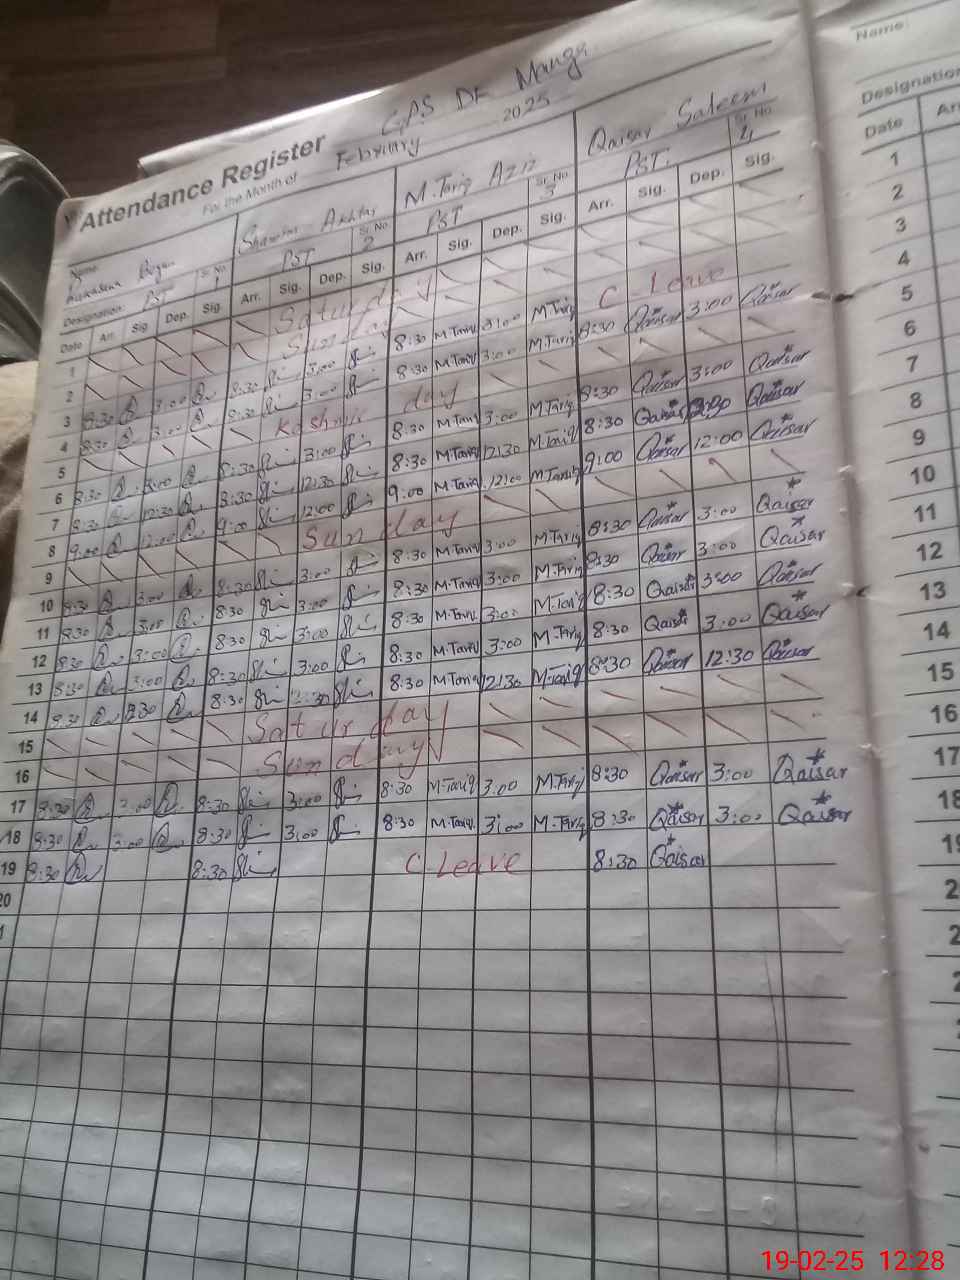 GPS DK Manga
Attendance Register
For the Month of February 2025
Name: Begum Sr. No. 1 Akhtar Sr. No. 2 M. Tariq Aziz Sr. No. 3 Qaisar Saleem Sr. No. 4
Designation PST PST PST PST
Date Arr. Sig. Dep. Sig. Arr. Sig. Dep. Sig. Arr. Sig. Dep. Sig. Arr. Sig. Dep. Sig.
1 Saturday
2 Sunday
3 8:30 3:00 8:30 3:00 8:30 M.Tariq 3:00 M.Tariq C-Leave
4 8:30 3:00 8:30 3:00 8:30 M.Tariq 3:00 M.Tariq 8:30 Qaisar 3:00 Qaisar
5 Kashmir day
6 8:30 3:00 8:30 3:00 8:30 M.Tariq 3:00 M.Tariq 8:30 Qaisar 3:00 Qaisar
7 8:30 12:30 8:30 12:30 8:30 M.Tariq 12:30 M.Tariq 8:30 Qaisar Qaisar
8 9:00 12:00 9:00 12:00 9:00 M.Tariq 12:00 M.Tariq 9:00 Qaisar 12:00 Qaisar
9 Sunday
10 8:30 3:00 8:30 3:00 8:30 M.Tariq 3:00 M.Tariq 8:30 Qaisar 3:00 Qaisar
11 8:30 3:00 8:30 3:00 8:30 M.Tariq 3:00 M.Tariq 8:30 Qaisar 3:00 Qaisar
12 8:30 3:00 8:30 3:00 8:30 M.Tariq 3:00 M.Tariq 8:30 Qaisar 3:00 Qaisar
13 8:30 3:00 8:30 3:00 8:30 M.Tariq 3:00 M.Tariq 8:30 Qaisar 3:00 Qaisar
14 8:30 12:30 8:30 12:30 8:30 M.Tariq 12:30 M.Tariq 8:30 Qaisar 12:30 Qaisar
15 Saturday
16 Sunday
17 8:30 3:00 8:30 3:00 8:30 M.Tariq 3:00 M.Tariq 8:30 Qaisar 3:00 Qaisar
18 8:30 3:00 8:30 3:00 8:30 M.Tariq 3:00 M.Tariq 8:30 Qaisar 3:00 Qaisar
19 8:30 8:30 C-Leave 8:30 Qaisar
20
Name:
Designation
Date
1
2
3
4
5
6
7
8
9
10
11
12
13
14
15
16
17
18
19
19-02-25 12:28